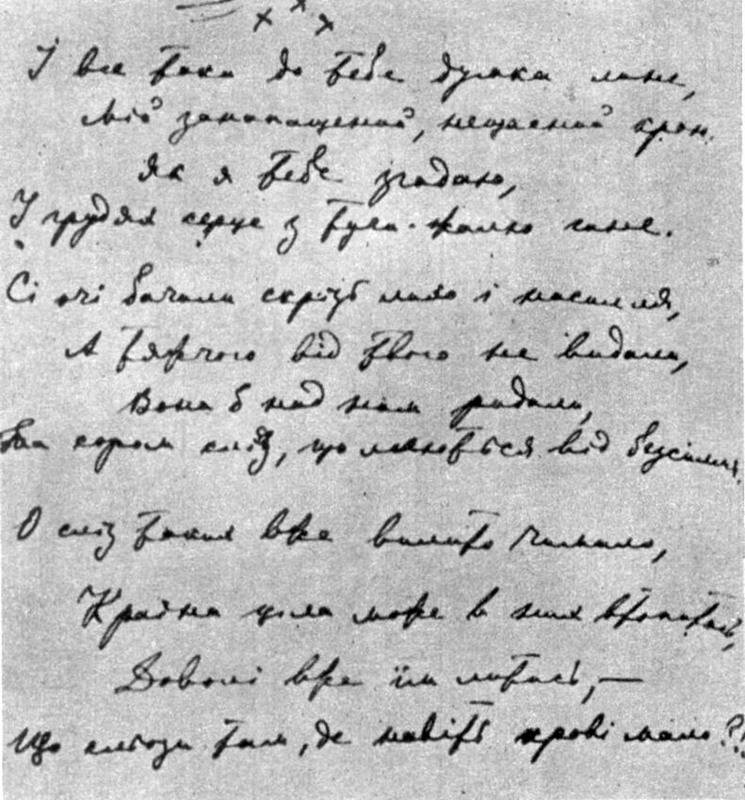 × × ×
І все таки до тебе думка лине,
Мій занапащений, нещасний краю.
Як я тебе згадаю,
У грудях серце з туги-жалю гине.
Сі очі бачили скрізь лихо і насилля,
А тяжчого від твого не видали,
Вони б над ним ридали,
Та сором сліз, що ллються від безсилля.
О сліз таких вже вилито чимало,
Країна ціла може в них втопитись,
Доволі вже їм литись, —
Що сльози там, де навіть крові мало?!